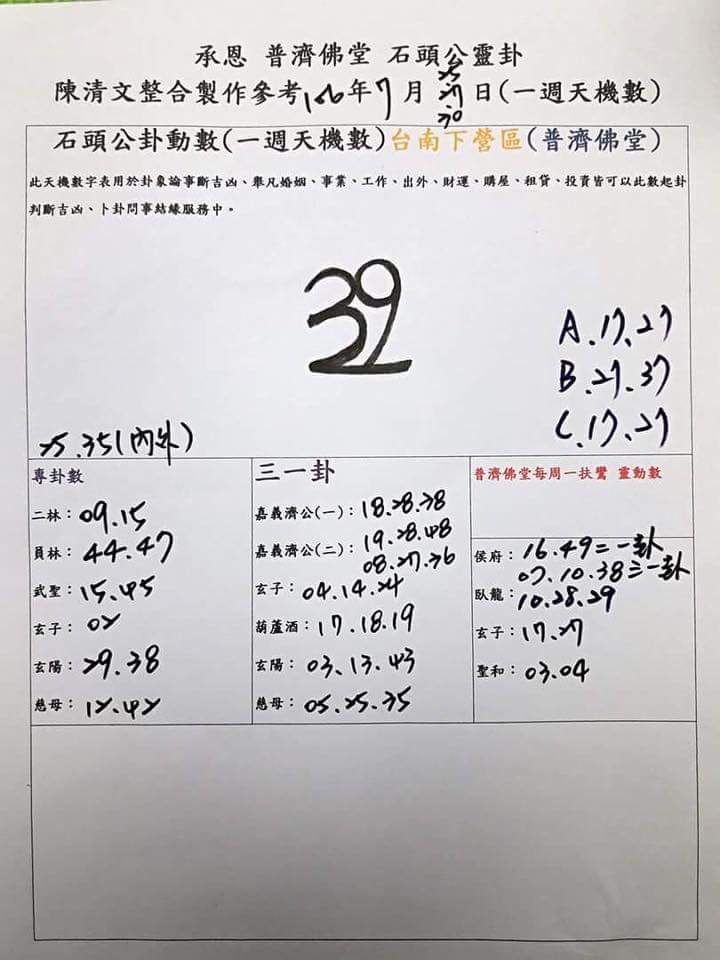 承恩 普濟佛堂 石頭公靈卦
陳清文整合製作參考106年7月25 27 30日(一週天機數)
石頭公卦動數(一週天機數)台南下營區(普濟佛堂)
此天機數字表用於卦象論事斷吉凶、舉凡婚姻、事業、工作、出外、財運、購屋、租貸、投資皆可以此數起卦
判斷吉凶、卜卦問事結緣服務中。
39
A.17.27
B.27.37
C.17.27
25.35(內外)
專卦數
二林：09.15
員林：44.47
武聖：15.45
玄子：02
玄陽：29.38
慈母：12.42
三一卦
嘉義濟公(一)：18.28.38
嘉義濟公(二)：19.28.48
08.27.36
玄子：04.14.24
葫蘆酒：17.18.19
玄陽：03.13.43
慈母：05.25.35
普濟佛堂每周一扶鸞 靈動數
侯府：16.49二一卦
07.10.38三一卦
臥龍：10.28.29
玄子：17.27
聖和：03.04